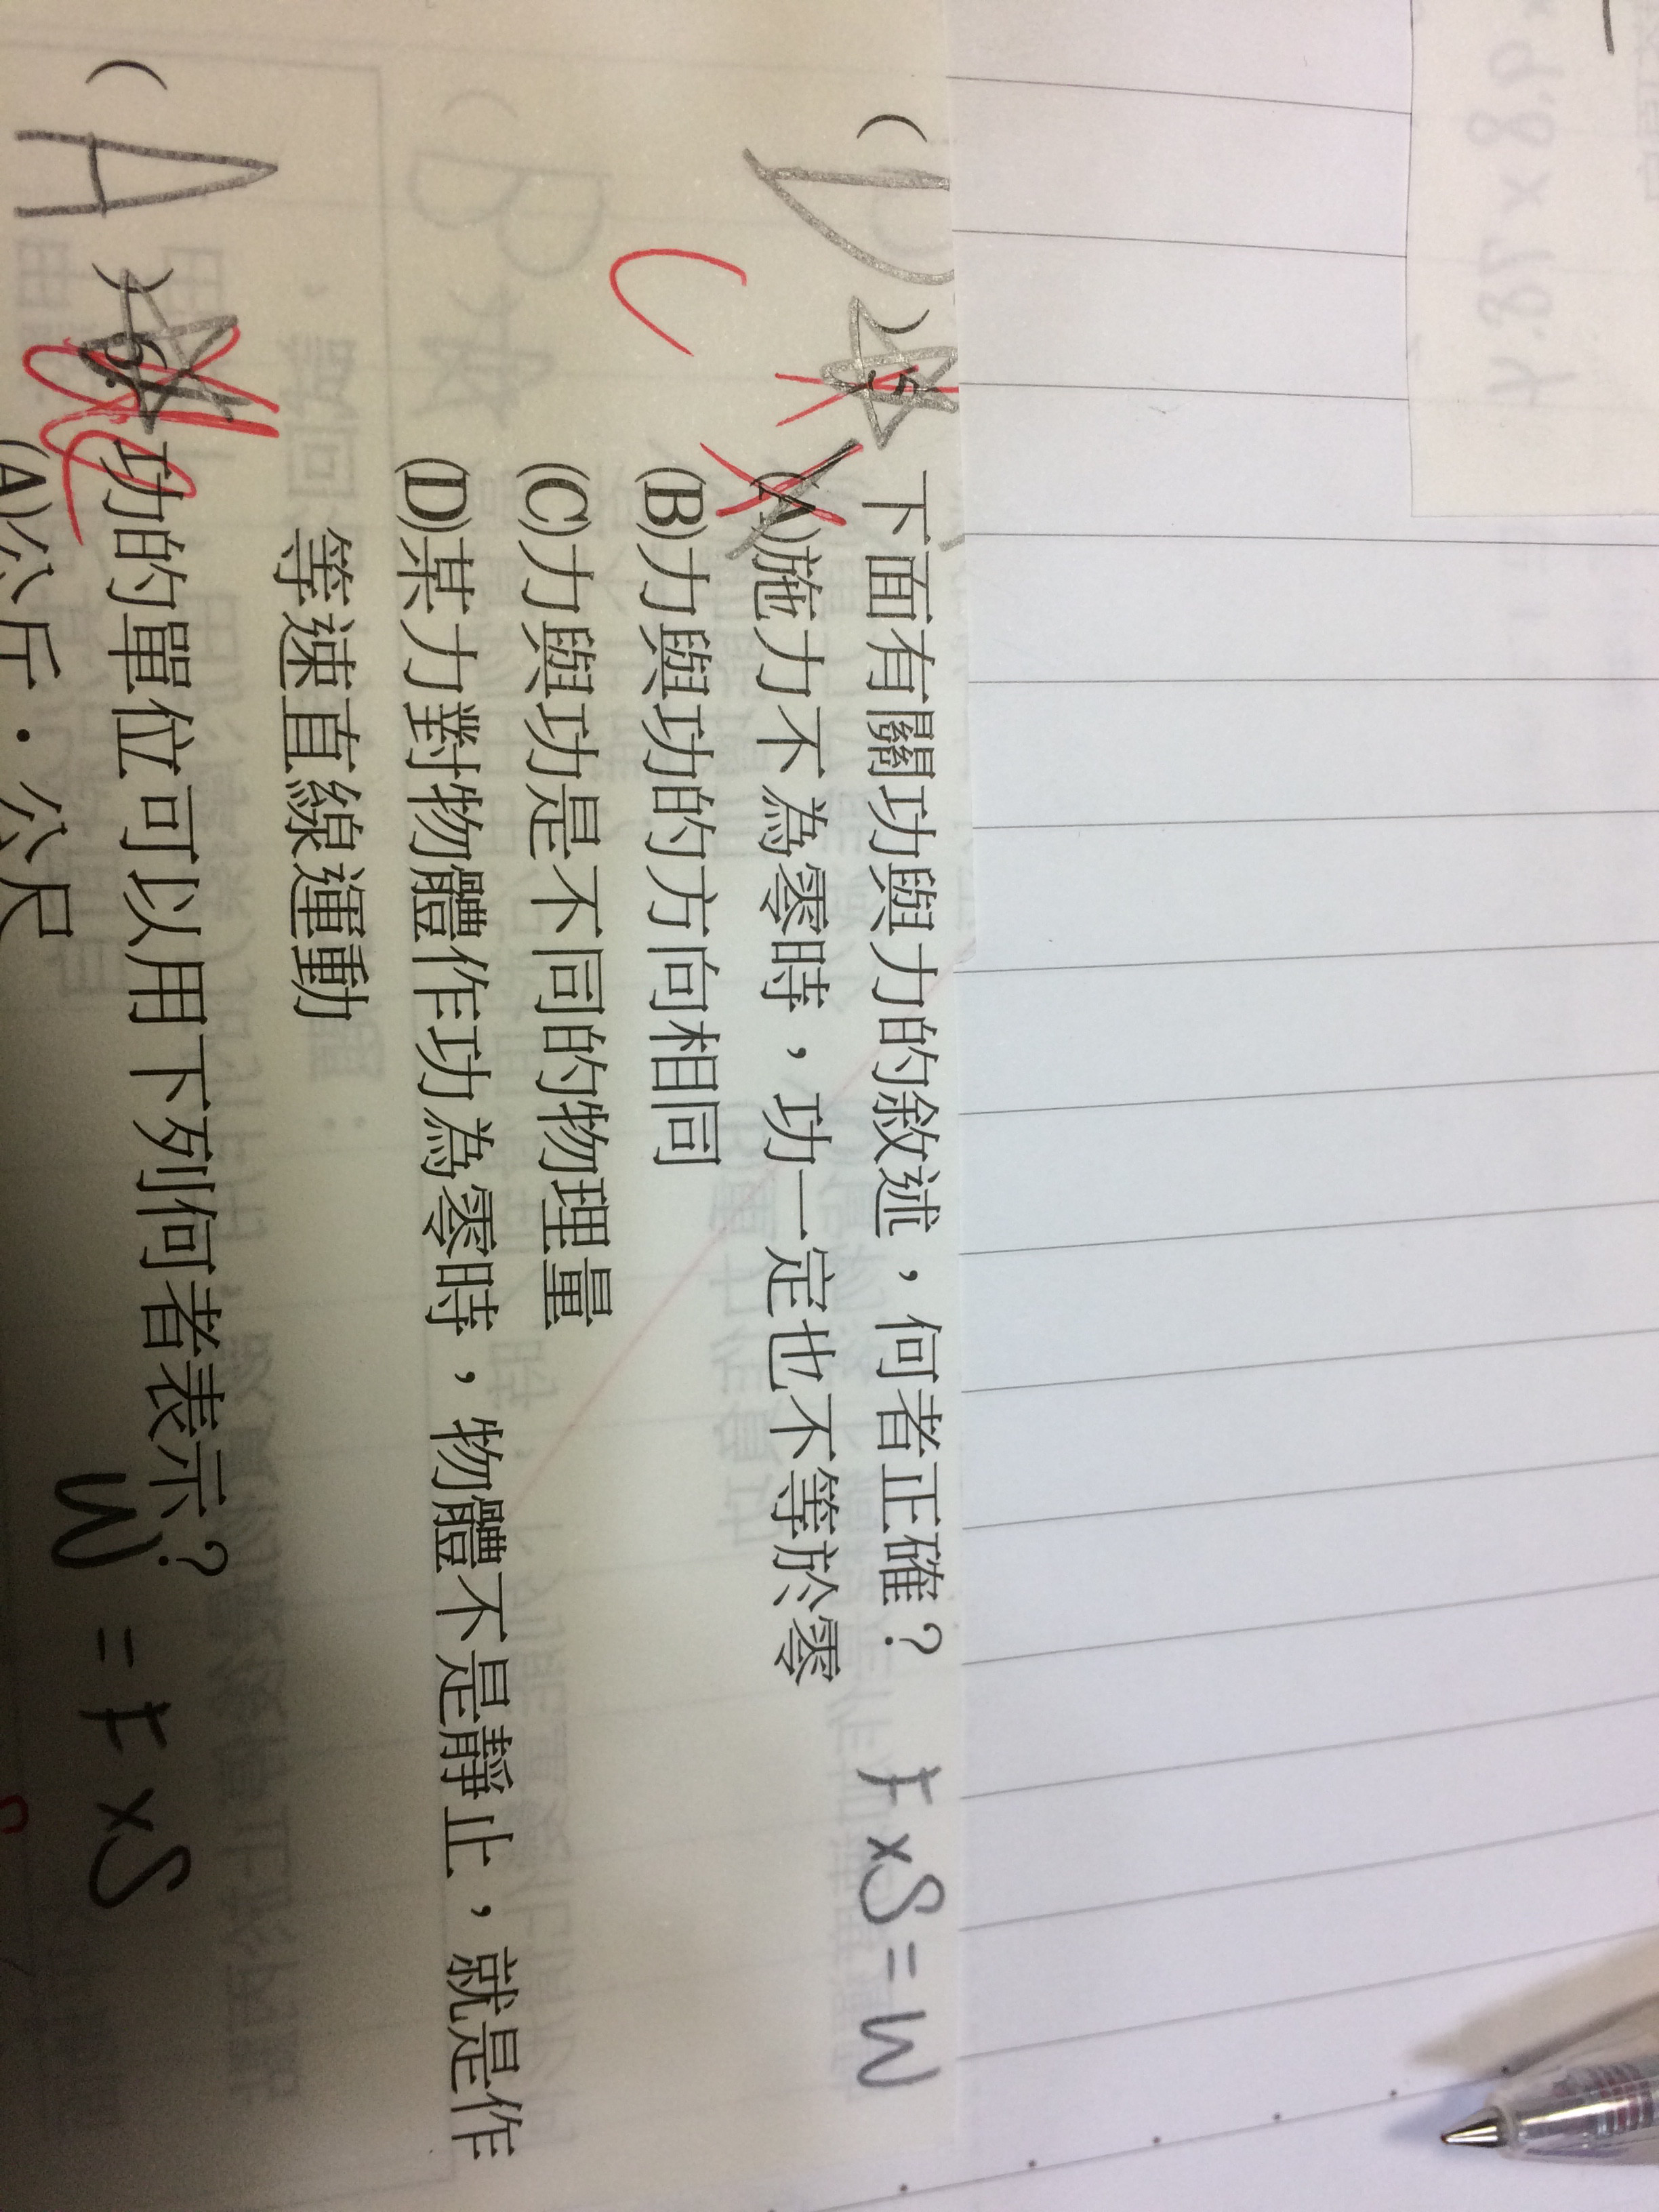 4.87×8.9×
(D)5.下面有關功與力的敘述，何者正確？ F×S=W
(A)施力不為零時，功一定也不等於零
C
(B)力與功的方向相同
(C)力與功是不同的物理量
(D)某力對物體作功為零時，物體不是靜止，就是作
等速直線運動
(A)6.功的單位可以用下列何者表示？ W=F×S
(A)公斤·公尺